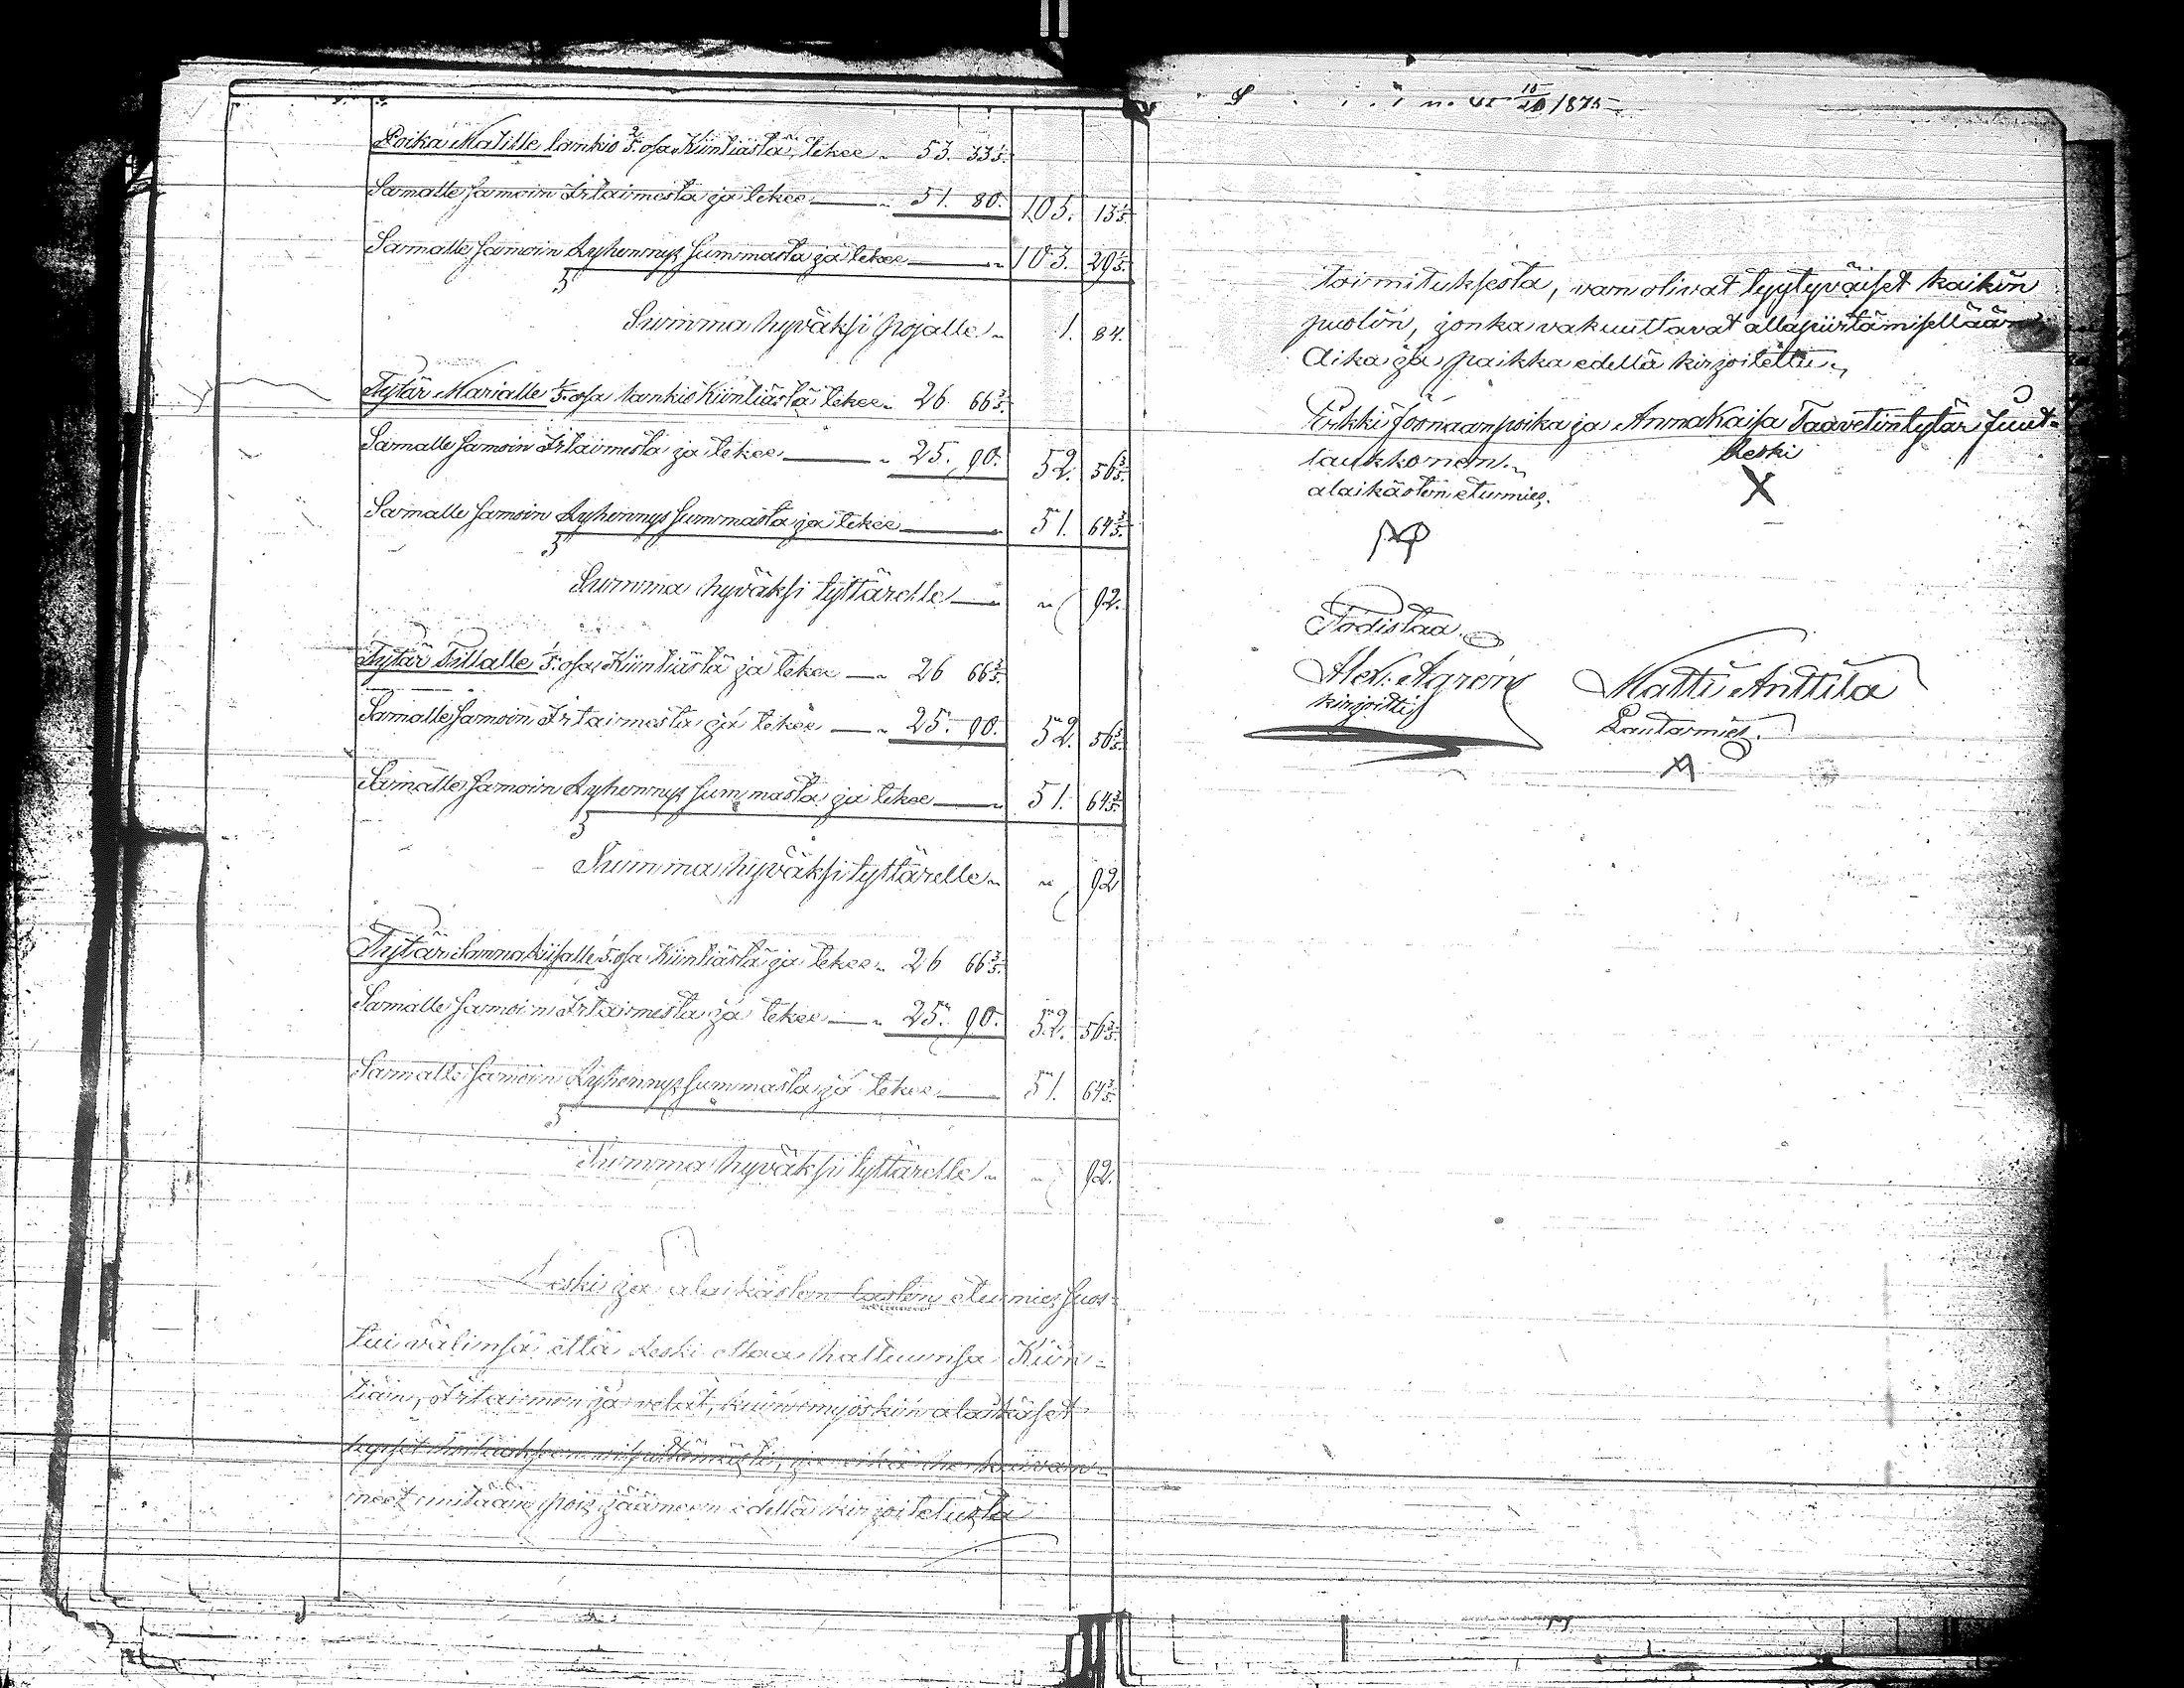 Poika Matille lankio 2/5 osa Kiintiästä, tekee „ 53. 33 1/5.
Samalle samoin Irtaimesta ja tekee — „ 51. 80. 105. 13 1/5.
Samalle samoin Lyhennys summasta ja tekee — „ 103. 29 1/5.
Summa hyväksi pojalle „ 1. 84.
Tytär Marialle 1/5 osa lankio Kiintiästä tekee „ 26 66 3/5.
Samalle samoin Irtaimesta ja tekee — „ 25. 90. 52. 56 3/5.
Samalle samoin Lyhennys summasta ja tekee — „ 51. 64 3/5.
Summa hyväksi tyttärelle — „ „ 92.
Tytär Tillalle 1/5 osa Kiintiästä ja tekee — „ 26 66 3/5.
Samalle samoin Irtaimesta ja tekee — „ 25. 90. 52. 56 3/5.
Samalle samoin Lyhennys summasta ja tekee — „ 51. 64 3/5.
Summa hyväksi tyttärelle „ „ 92
Tytär Sannakiisalle 1/5 osa Kiintiästä ja tekee „ 26 66 3/5.
Samalle samoin Irtaimesta ja tekee — „ 25. 90. 52. 56 3/5.
Samalle samoin Lyhennys summasta ja tekee — 51. 64 3/5.
Summa hyväksi tyttärelle „ „ 92.
Leski ja alaikästen lasten etumies suos=
tui välinsä että Leski ottaa haltuunsa Kiin=
tiän, Irtaimen ja velat, kuin myöskin alaikäset
meet mitään pois jääneen edellä kirjoitetusta
18/10 1875
toimituksesta, vam olivat tyytyväiset kaikin
puolin, jonka vakuuttavat allapiirtämisellään
Aika ja paikka edellä kirjoitettu „
Erkki Joonaanpoika ja Anna Kaisa Taavetintytär Juut=
laukkonen „ leski
alaikästen etumies. X
Todistaa.
Alex: Agren Matti Anttila
kirjoitti Lautamies.